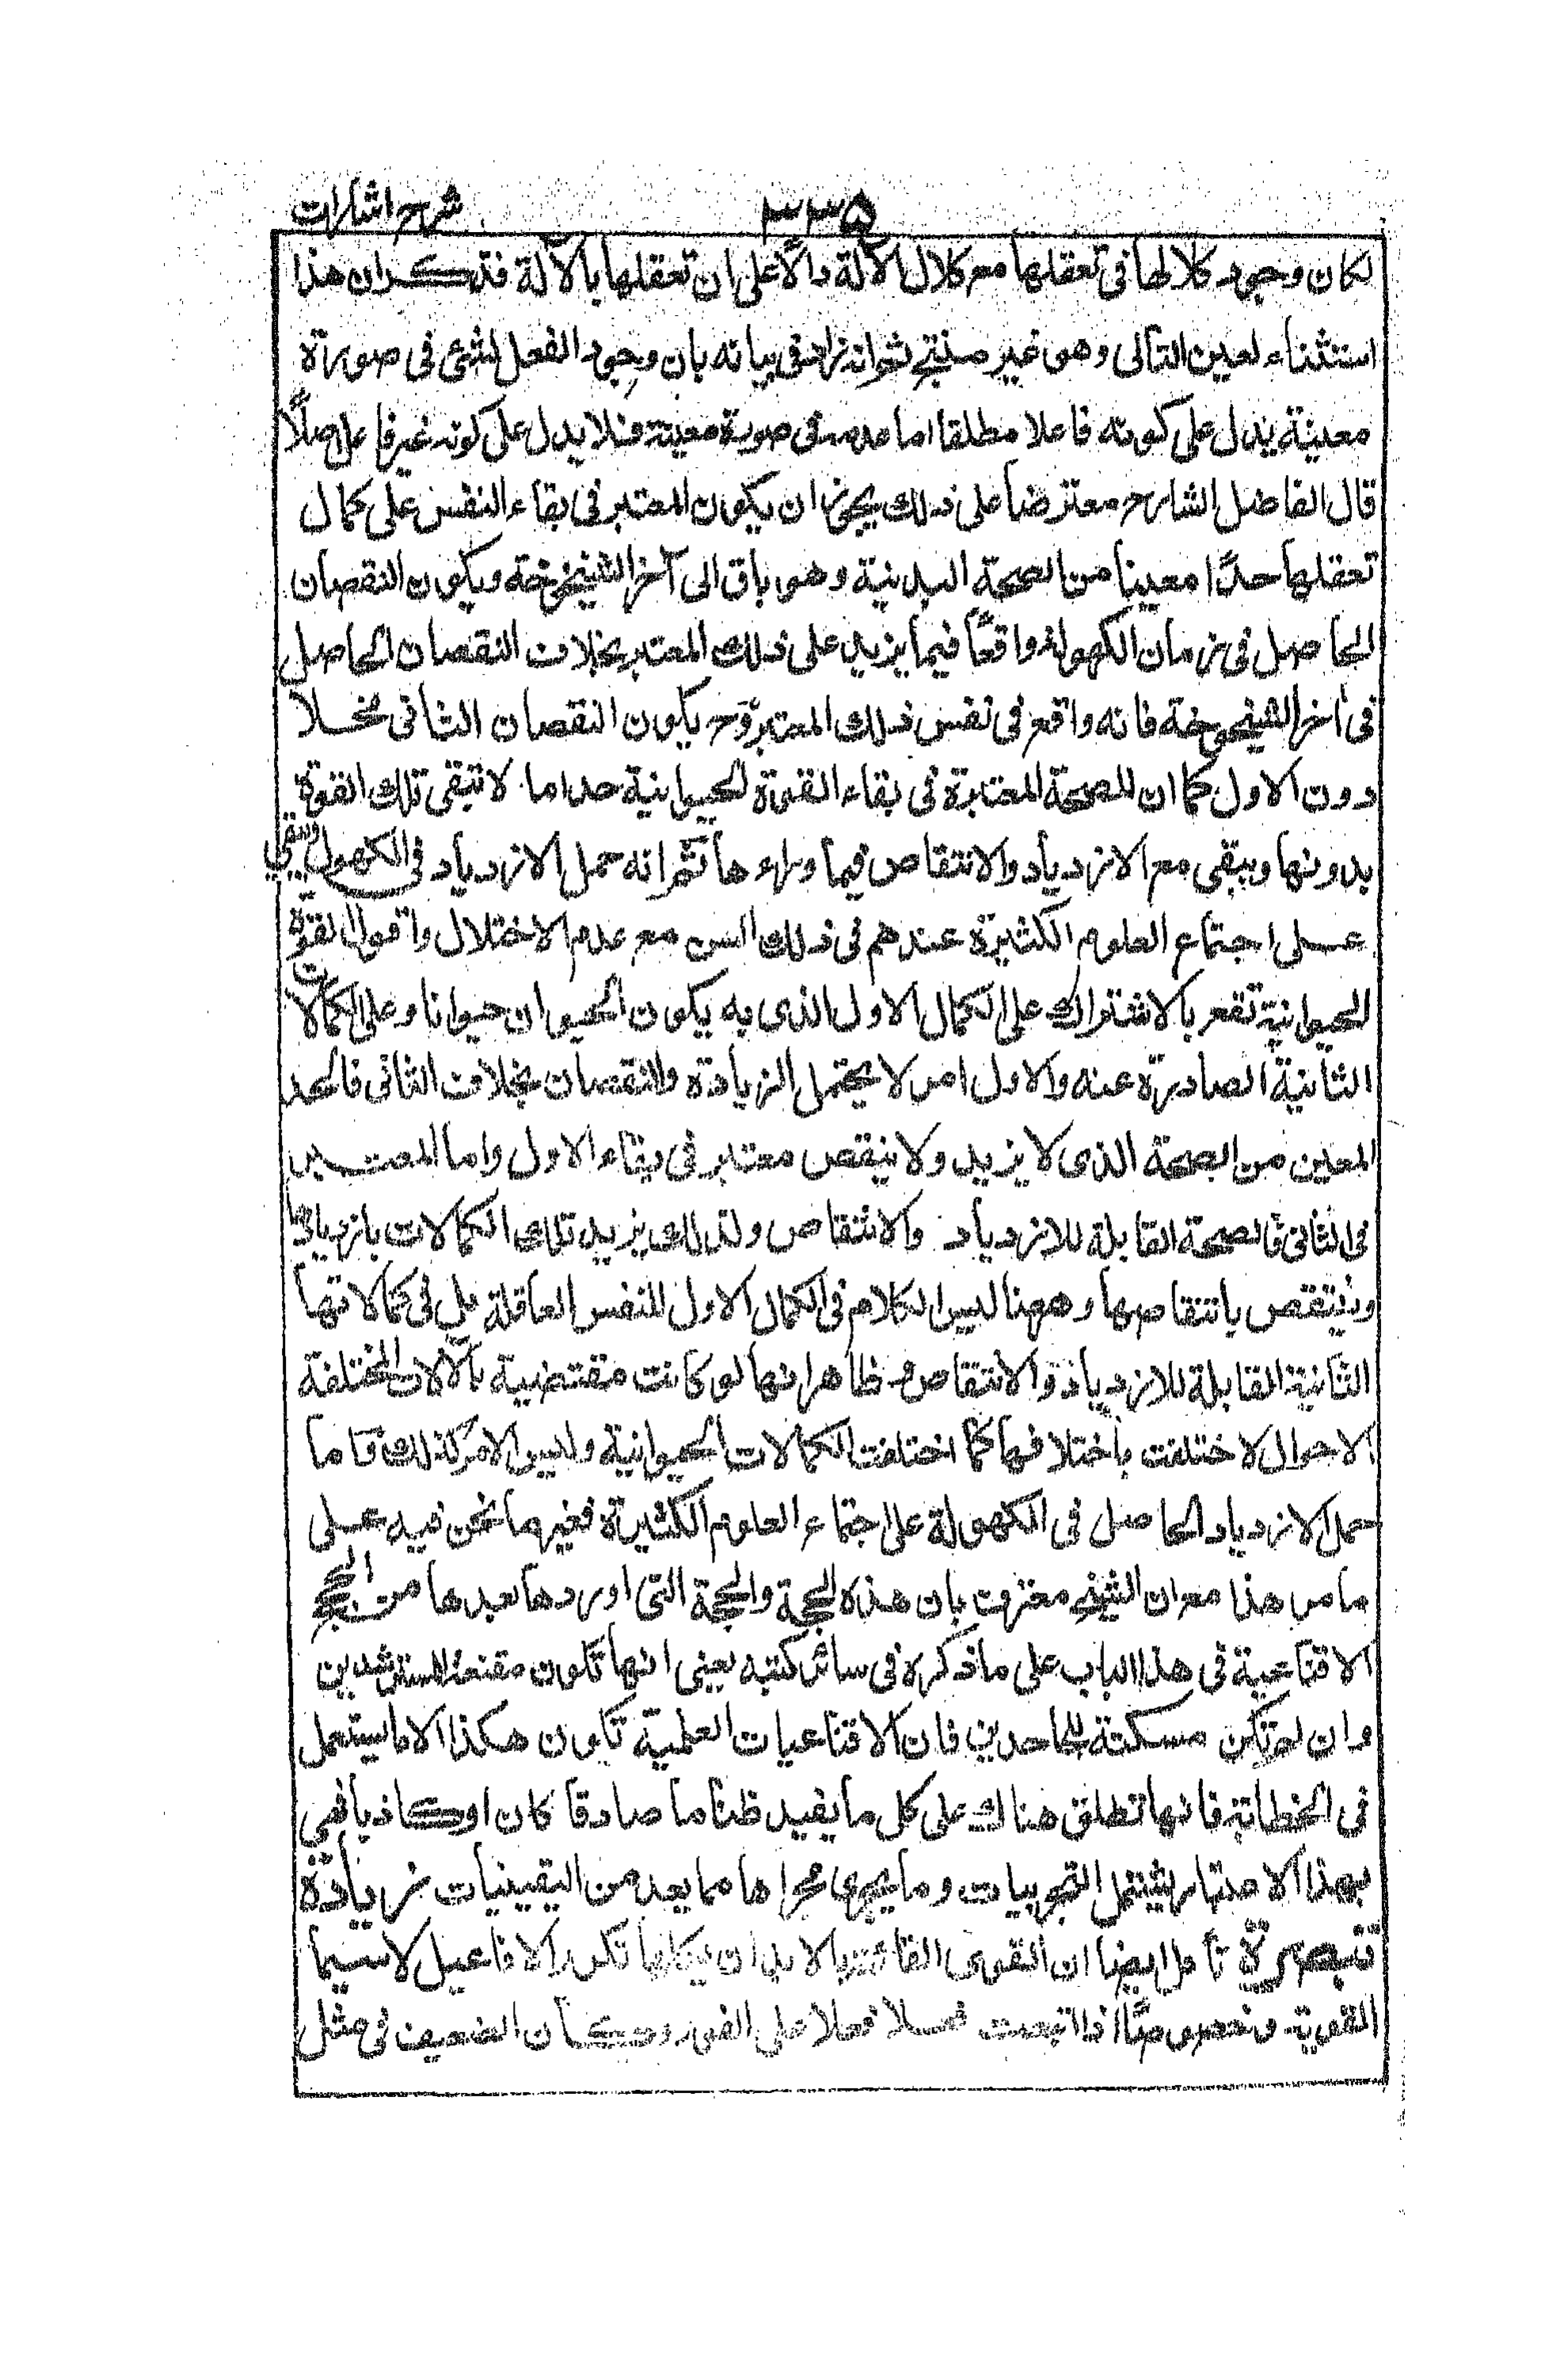 ۳۳۵ شرح اشارات
لكان وجود كلالها فى تعقلها مع كلال الآلة دالًا على ان تعقلها بالآلة فذكر ان هذا
استثناء لعين التالى وهو غير منتج ثم انه زاد فى بيانه بان وجود الفعل لشئ فى صورة
معينة يدل على كونه فاعلا مطلقا اما عدمه فى صورة معينة فلا يدل على كونه غير فاعل اصلًا
قال الفاضل الشارح معترضا على ذلك يجوز ان يكون المعتبر فى بقاء النفس على كمال
تعقلها حدًا معينا من الصحة البدنية وهو باق الى آخر الشيخوخة ويكون النقصان
الحاصل فى زمان الكهولة واقعًا فيما يزيد على ذلك المعتبر بخلاف النقصان الحاصل
فى آخر الشيخوخة فانه واقع فى نفس ذلك المعتبر وح يكون النقصان الثانى مخلا
دون الاول كما ان للصحة المعتبرة فى بقاء القوة الحيوانية حدا ما لا تبقى تلك القوة
بدونها ويبقى مع الازدياد والانتقاص فيما وراءها ثم انه حمل الازدياد فى الكهول
على اجتماع العلوم الكثيرة عندهم فى ذلك السن مع عدم الاختلال واقول القوة
الحيوانية تقع بالاشتراك على الكمال الاول الذى به يكون الحيوان حيوانا وعلى الكمالات
الثانية الصادرة عنه والاول امر لا يحتمل الزيادة والنقصان بخلاف الثانى فالحد
المعين من الصحة الذى لا يزيد ولا ينقص معتبر فى بقاء الاول واما المعتبر
فى الثانى فالصحة القابلة للازدياد والانتقاص ولذلك يزيد تلك الكمالات بازديادها
وينتقص بانتقاصها وههنا ليس الكلام فى الكمال الاول للنفس العاقلة بل فى كمالاتها
الثانية القابلة للازدياد والانتقاص وظاهر انها لو كانت مقتضية بالآلات المختلفة
الاحوال لاختلفت باختلافها كما اختلفت الكمالات الحيوانية وليس الامر كذلك فاما
حمل الازدياد الحاصل فى الكهولة على اجتماع العلوم الكثيرة فغير ما نحن فيه على
ما مر هذا مع ان الشيخ معترف بان هذه الحجة والحجة التى اوردها بعدها من الحجج
الاقناعية فى هذا الباب على ما ذكره فى سائر كتبه يعنى انها تكون مقنعة للمسترشدين
وان لم تكن مسكتة للجاحدين فان الاقناعيات العلمية تكون هكذا الا ما يستعمل
فى الخطابة فانها تطلق هناك على كل ما يفيد ظنا ما صادقا كان او كاذبا فهى
بهذا الاعتبار يشتمل التجربيات وما يجرى مجراها مما يعد من اليقينيات زيادة
تبصرة تأمل ايضا ان القوى القائمة بالابدان يكلها تكرر الافاعيل لاسيما
القوية وخصوصًا اذا اتبعت فعلا فعلا على الفور وكان الضعيف فى مثل